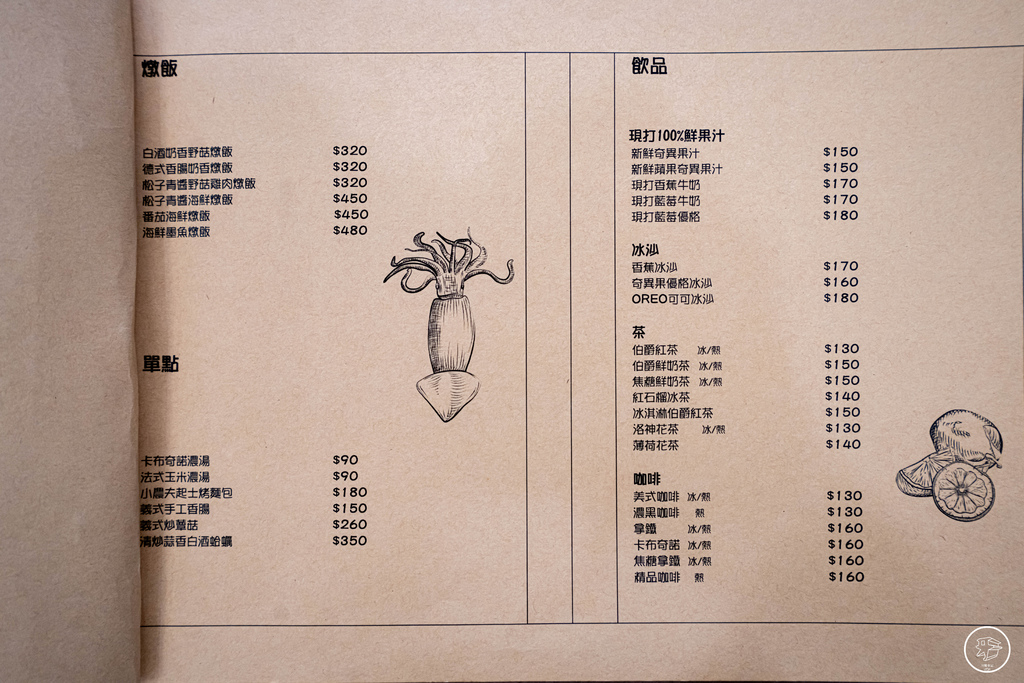 燉飯
白酒奶香野菇燉飯 $320
德式香腸奶香燉飯 $320
松子青醬野菇雞肉燉飯 $320
松子青醬海鮮燉飯 $450
番茄海鮮燉飯 $450
海鮮墨魚燉飯 $480
單點
卡布奇諾濃湯 $90
法式玉米濃湯 $90
小農夫起士烤麵包 $180
義式手工香腸 $150
義式炒蘑菇 $260
清炒蒜香白酒蛤蠣 $350
飲品
現打100%鮮果汁
新鮮奇異果汁 $150
新鮮蘋果奇異果汁 $150
現打香蕉牛奶 $170
現打藍莓牛奶 $170
現打藍莓優格 $180
冰沙
香蕉冰沙 $170
奇異果優格冰沙 $160
OREO可可冰沙 $180
茶
伯爵紅茶 冰/熱 $130
伯爵鮮奶茶 冰/熱 $150
焦糖鮮奶茶 冰/熱 $150
紅石榴冰茶 $140
冰淇淋伯爵紅茶 $150
洛神花茶 冰/熱 $130
薄荷花茶 $140
咖啡
美式咖啡 冰/熱 $130
濃黑咖啡 熱 $130
拿鐵 冰/熱 $160
卡布奇諾 冰/熱 $160
焦糖拿鐵 冰/熱 $160
精品咖啡 熱 $160